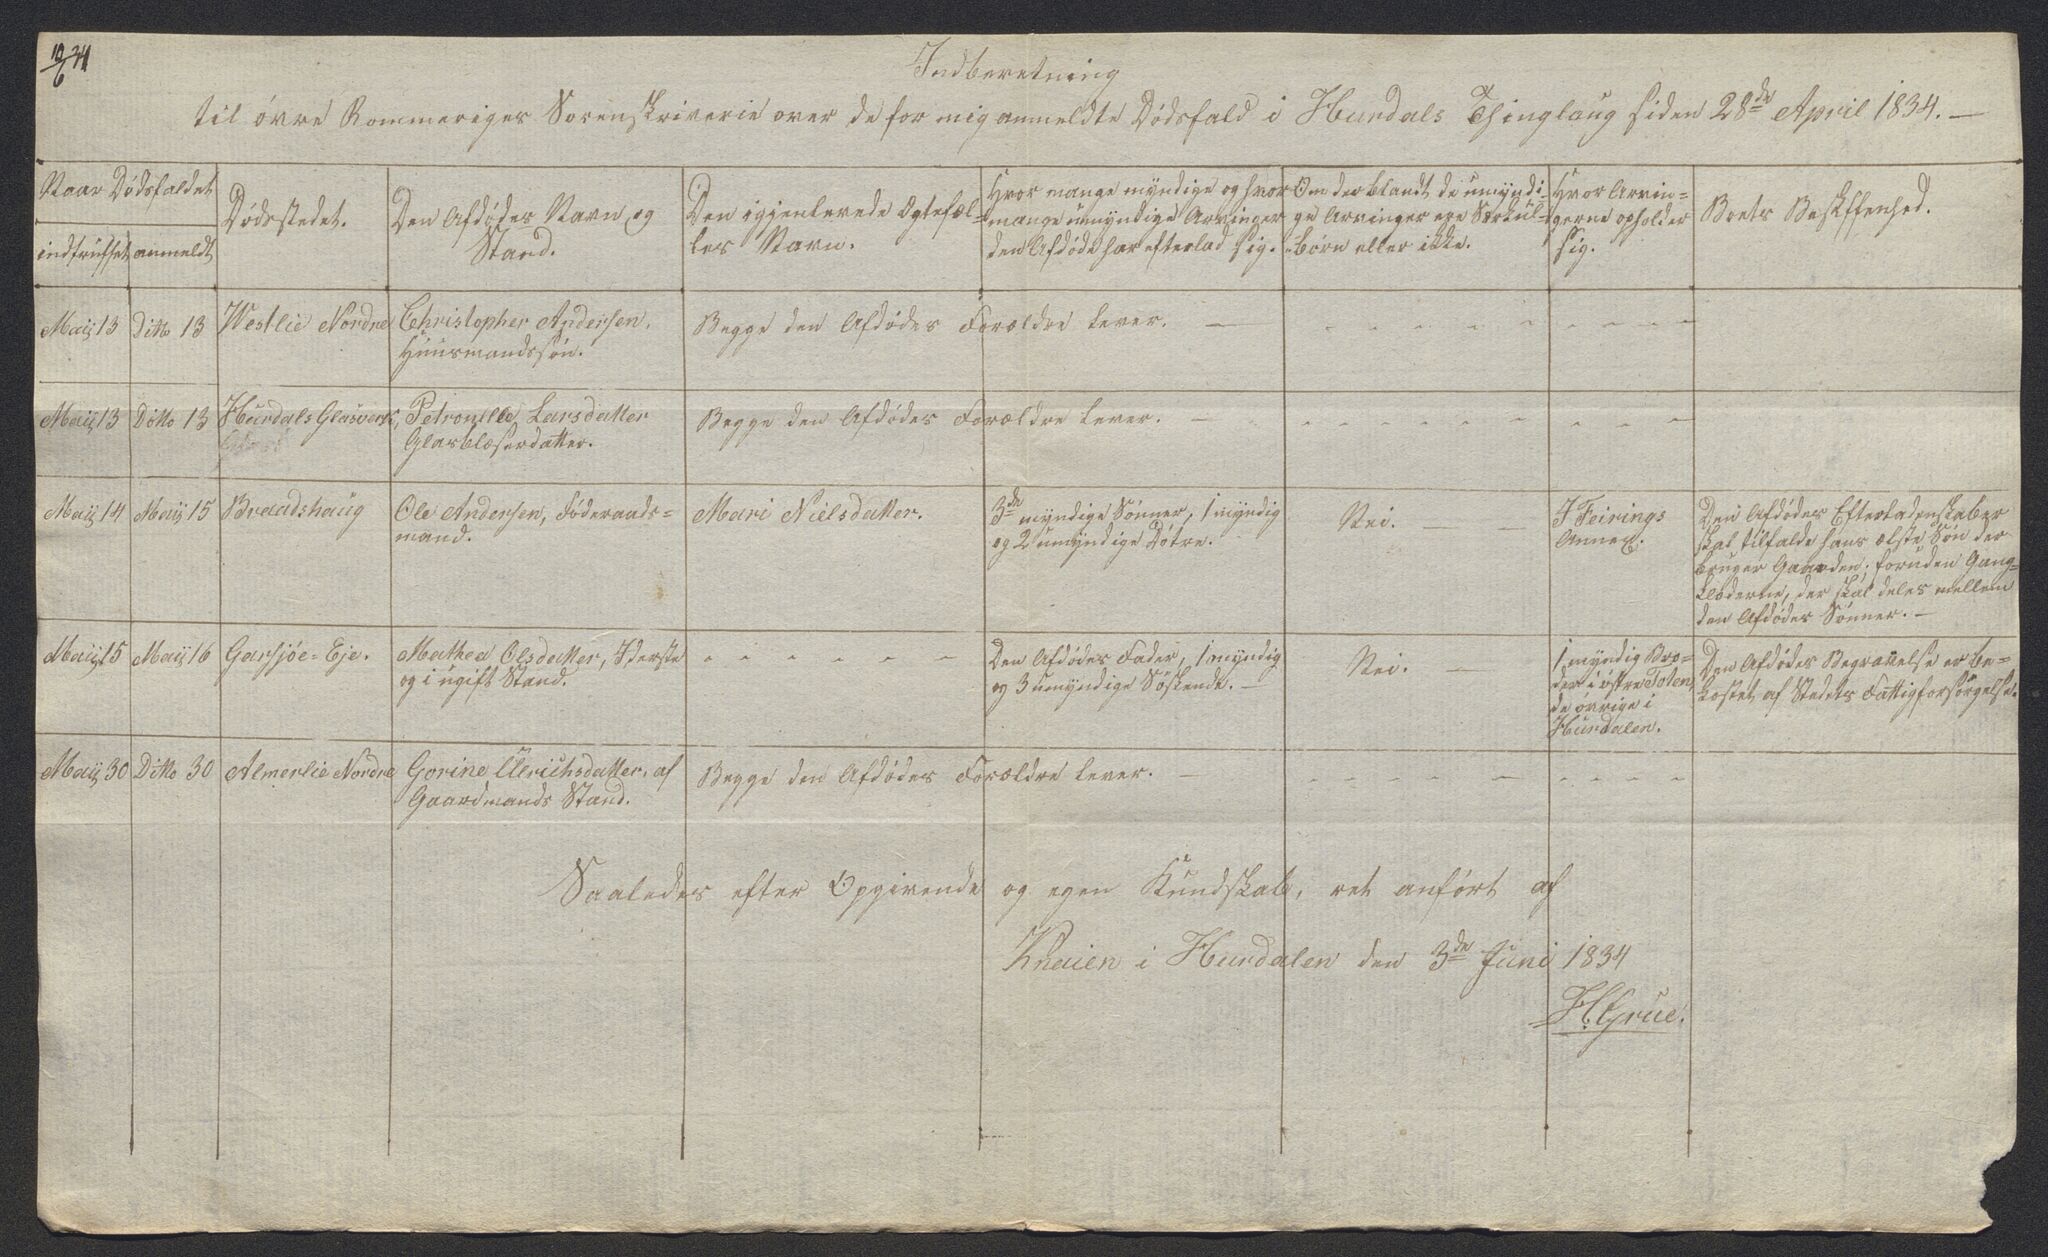 10/6 34
Indberetning
til øvre Rommeriges Sorenskriverie over de for mig anmeldte Dødsfald i Hurdals Thinglaug siden 28de April 1834. —
Naar Dødsfaldet
indtruffet
anmeldt
Dødsstedet.
Den Afdødes Navn og
Stand.
Den igjenlevede Ægtefæl-
les Navn.
Hvor mange myndige og hvor
mange umyndige Arvinger
den Afdøde har efterlad sig.
Om der blandt de umyndi-
ge Arvinger ere Særkul-
børn eller ikke.
Hvor Arvin-
gerne opholder
sig.
Boets Beskffenhed.
Maij 13
Ditto 13
Westlie Nordre
Christopher Andersen,
Huusmandssøn.
Begge den Afdødes Forældre lever. —
Maij 13
Ditto 13
Hurdals Glasverk,
Petronelle Larsdatter
Glasblæserdatter.
Begge den Afdødes Forældre lever. —
Maij 14
Maij 15
Braadshaug
Ole Andersen, Føderaads-
mand.
Mari Nielsdatter.
3de myndige Sønner, 1 myndig
og 2 umyndige Døtre.
Nei. — —
I Feirings
Annex.
Den Afdødes Efterladenskaber
skal tilfalde hans ælste Søn der
bruger Gaarden; foruden Gang-
klæderne, der skal deles mellem
den Afdødes Sønner. —
Maij 15
Maij 16
Garsjøe-Eje.
Mathea Olsdatter, Iderste
og i ugift Stand.
Den Afdødes Fader, 1 myndig
og 3 umyndige Søskende. —
Nei. —
1 myndig Bro-
der i østre Toten,
de øvrige i
Hurdalen.
Den Afdødes Begravelse er be-
kostet af Stedets Fattigforsørgelse.
Maij 30
Ditto 30
Almerlie Nordre
Gorine Ulrichsdatter, af
Gaardmands Stand.
Begge den Afdødes Forældre lever. —
Saaledes efter Opgivende og egen Kundskab, ret anført af
Knaien i Hurdalen den 3de Juni 1834
H. Grue.